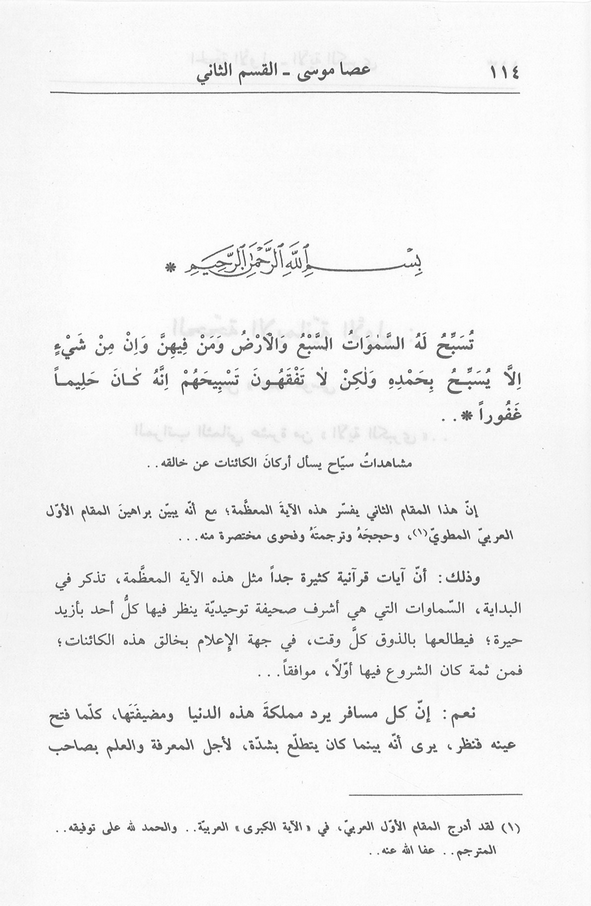 ١١٤ عصا موسى ـ القسم الثاني
بِسْمِ اللَّهِ الرَّحْمَنِ الرَّحِيمِ *
تُسَبِّحُ لَهُ السَّمٰوَاتُ السَّبْعُ وَالْاَرْضُ وَمَنْ فِيهِنَّ وَاِنْ مِنْ شَيْءٍ
اِلَّا يُسَبِّحُ بِحَمْدِهِ وَلٰكِنْ لَا تَفْقَهُونَ تَسْبِيحَهُمْ اِنَّهُ كَانَ حَلِيماً
غَفُوراً * . .
مشاهداتُ سيّاح يسأل أركانَ الكائنات عن خالقه . .
إنّ هذا المقام الثاني يفسّر هذه الآيةَ المعظَّمة؛ مع أنّه يبيّن براهينَ المقام الأوّل
العربيّ المطويّ(١)، وحججَهُ وترجمتَهُ وفحوى مختصرة منه . . .
وذلك: أنّ آيات قرآنية كثيرة جداً مثل هذه الآية المعظَّمة، تذكر في
البداية، السّماوات التي هي أشرف صحيفة توحيديّة ينظر فيها كلُّ أحد بأزيد
حيرة؛ فيطالعها بالذوق كلَّ وقت، في جهة الإعلام بخالق هذه الكائنات؛
فمن ثمة كان الشروع فيها أوّلًا، موافقاً . . .
نعم: إنّ كل مسافر يرد مملكةَ هذه الدنيا ومضيفَتَها، كلّما فتح
عينه فنظر، يرى أنّه بينما كان يتطلّع بشدّة، لأجل المعرفة والعلم بصاحب
(١) لقد أدرج المقام الأوّل العربيّ، في «الآية الكبرى» العربيّة . . والحمد لله على توفيقه . .
المترجم . . عفا الله عنه . .